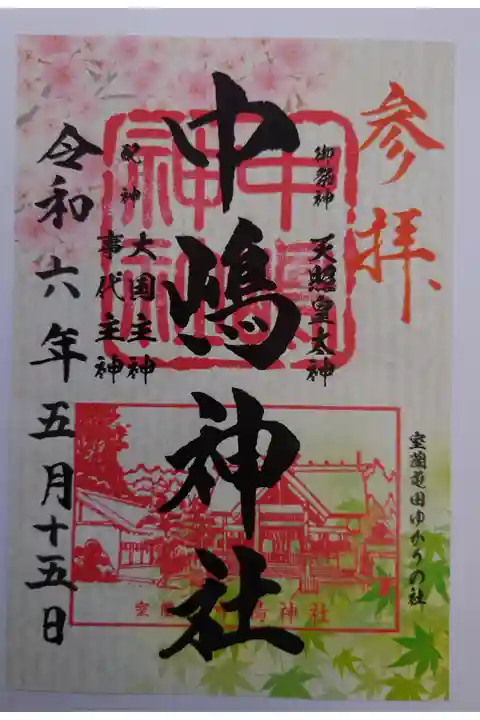 参拝
御祭神 天照皇大神
室蘭亀田ゆかりの社
中嶋神社
配神 大国主神
事代主神
令和六年五月十五日
中嶋神社
室蘭 中嶋神社